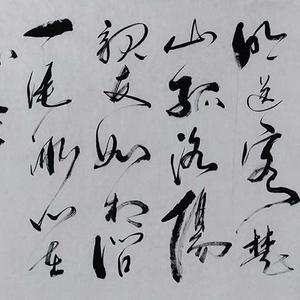 明送客楚
山孤洛陽
親友如相問
一片冰心在